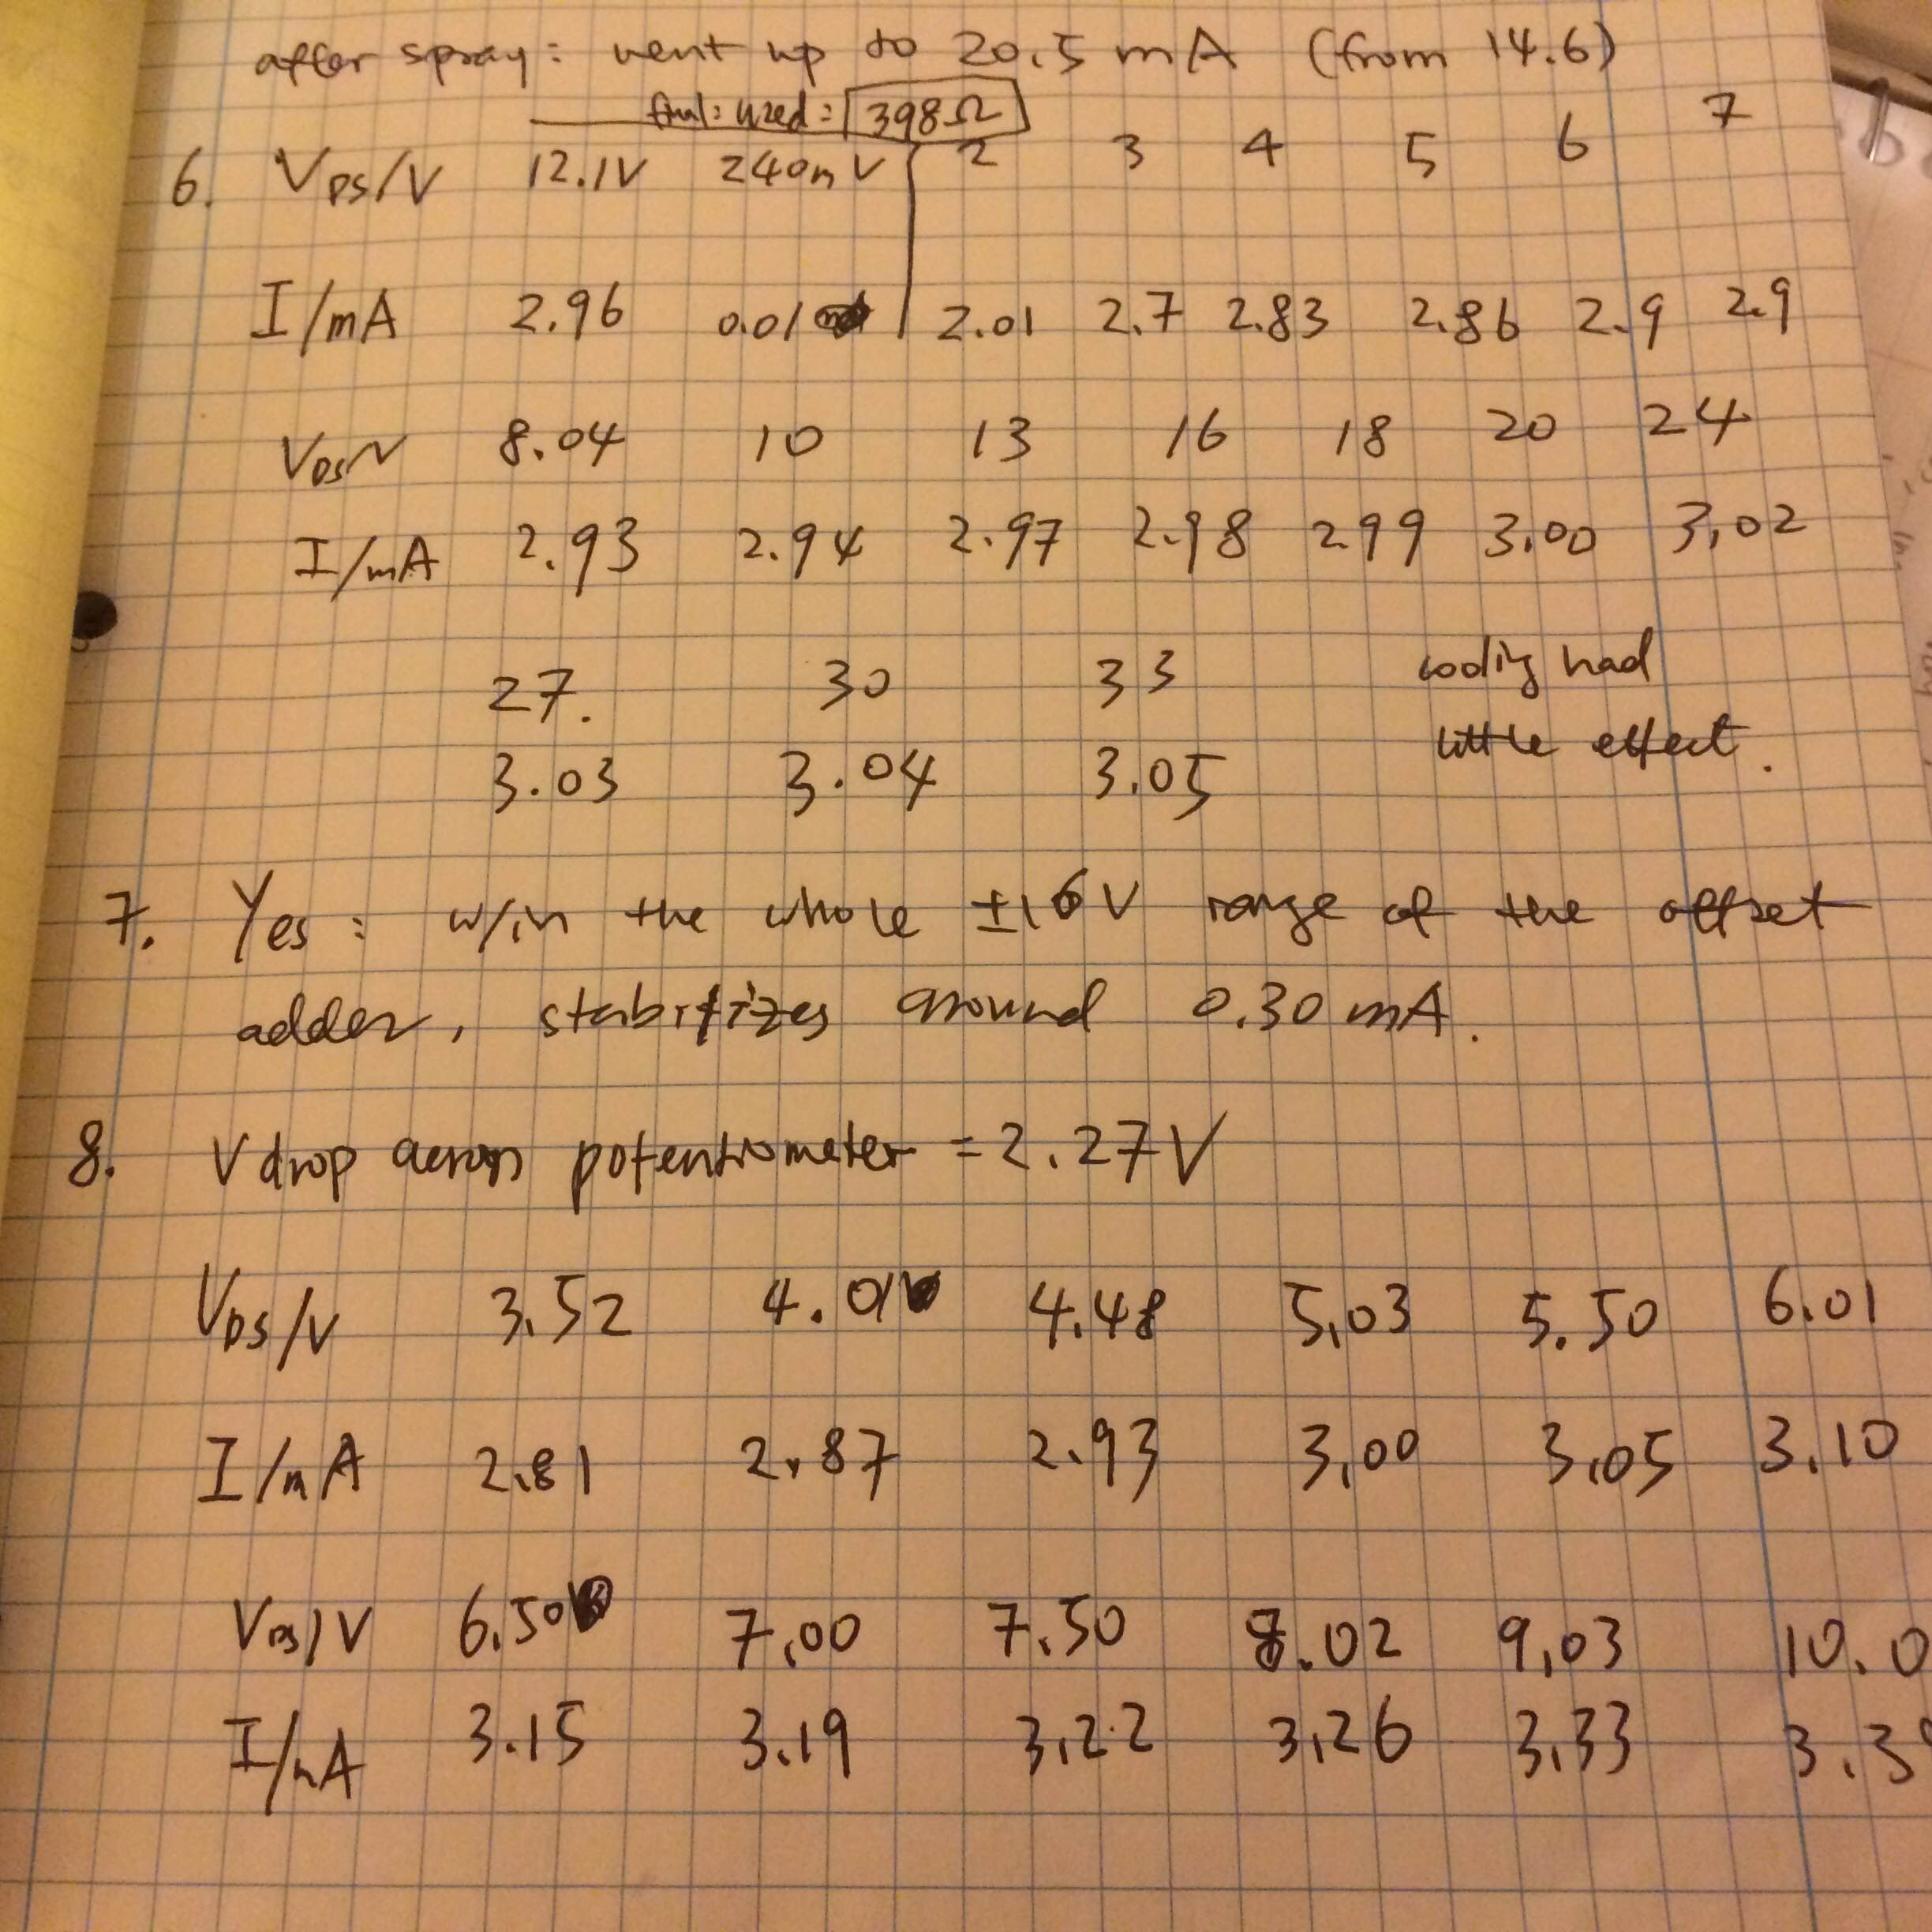 after spray: went up to 20.5 mA (from 14.6)
final: used = 398Ω
6. VDS/V 12.1V 240mV 2 3 4 5 6 7
I/mA 2.96 0.01 2.01 2.7 2.83 2.86 2.9 2.9
VDS/V 8.04 10 13 16 18 20 24
I/mA 2.93 2.94 2.97 2.98 2.99 3.00 3.02
27. 30 33 cooling had
3.03 3.04 3.05 little effect.
7. Yes: w/in the whole ±16V range of the offset
adder, stabilizes around 0.30 mA.
8. V drop across potentiometer = 2.27V
VDS/V 3.52 4.01 4.48 5.03 5.50 6.01
I/mA 2.81 2.87 2.93 3.00 3.05 3.10
VDS/V 6.50 7.00 7.50 8.02 9.03 10.0
I/mA 3.15 3.19 3.22 3.26 3.33 3.3